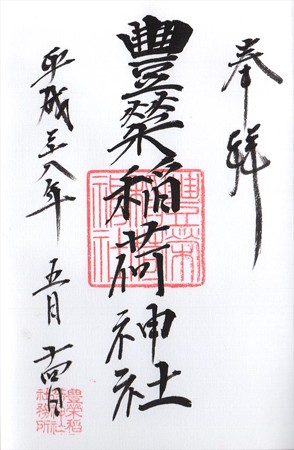 奉拝
豐榮稲荷神社
平成二十八年 五月 十四日
豐榮稲
荷神社
社務所